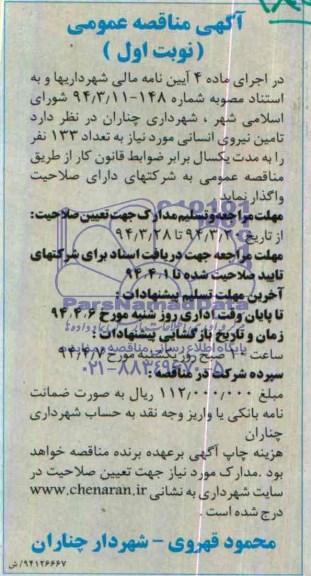 آگهی مناقصه عمومی
(نوبت اول)
در اجرای ماده ۴ آیین نامه مالی شهرداریها و به
استناد مصوبه شماره ۱۴۸-۹۴/۳/۱۱ شورای
اسلامی شهر ، شهرداری چناران در نظر دارد
تامین نیروی انسانی مورد نیاز به تعداد ۱۳۳ نفر
را به مدت یکسال برابر ضوابط قانون کار از طریق
مناقصه عمومی به شرکتهای دارای صلاحیت
واگذار نماید
مهلت مراجعه و تسلیم مدارک جهت تعیین صلاحیت:
از تاریخ ۹۴/۳/۲۰ تا ۹۴/۳/۲۸
مهلت مراجعه جهت دریافت اسناد برای شرکتهای
تایید صلاحیت شده تا ۹۴.۴.۱
آخرین مهلت تسلیم پیشنهادات :
تا پایان وقت اداری روز شنبه مورخ ۹۴.۴.۶
زمان و تاریخ بازگشایی پیشنهادات :
ساعت ۱۰ صبح روز یکشنبه مورخ ۹۴/۴/۷
سپرده شرکت در مناقصه :
مبلغ ۱۱۲/۰۰۰/۰۰۰ ریال به صورت ضمانت
نامه بانکی یا واریز وجه نقد به حساب شهرداری
چناران
هزینه چاپ آگهی برعهده برنده مناقصه خواهد
بود .مدارک مورد نیاز جهت تعیین صلاحیت در
سایت شهرداری به نشانی www.chenaran.ir
درج شده است .
محمود قهروی - شهردار چناران
۹۴۱۲۶۶۶۷/ش
ParsNamadData
پایگاه اطلاع رسانی مناقصه و مزایده
۰۲۱-۸۸۳۴۹۶۷۰-۵